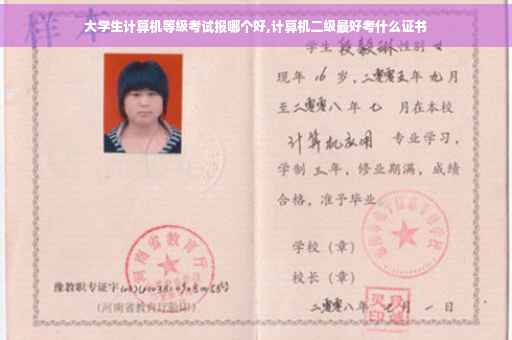 大学生计算机等级考试报哪个好,计算机二级最好考什么证书
样本
学生 段毅琳 性别 女
现年 16 岁,二零零五年 九月
至二零零八年 七 月在本校
计算机应用 专业学习,
学制 三 年,修业期满,成绩
合格,准予毕业
学校(章)
校长(章)
二零零八年 月 一 日
河南省教育厅
豫教职专证字
(河南省教育厅验印)